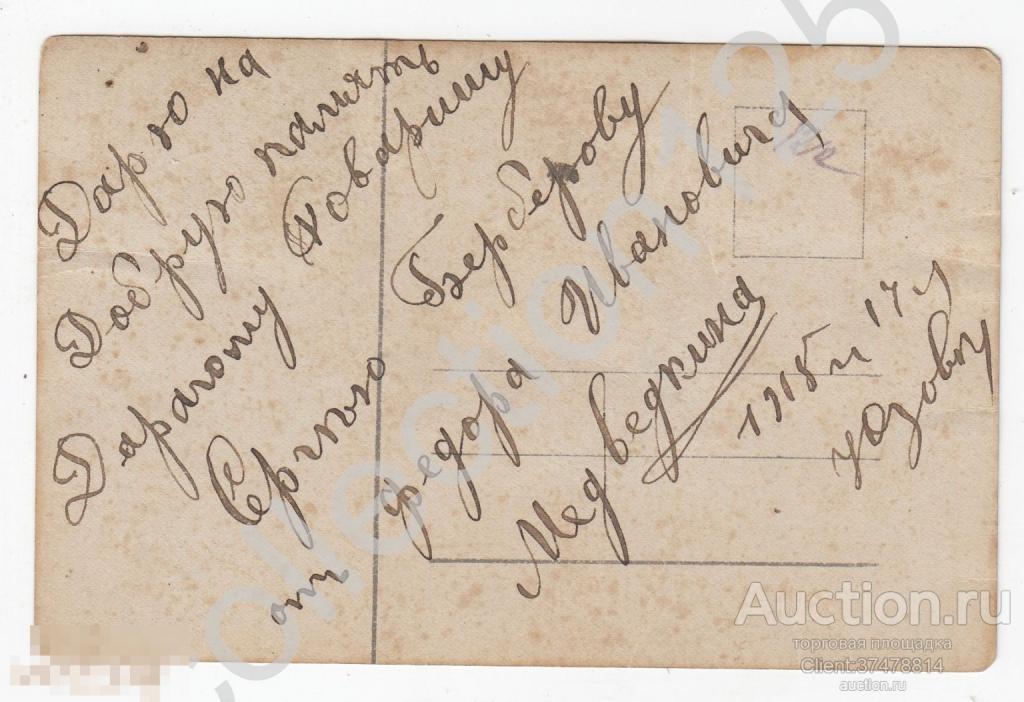 Дарю на
Добрую память
Дарагому Товарищу
Сергѣю Берберову
от федора Ивановича
Медведкина
1918 м 17 г
Юзовку
collection125
Auction.ru
торговая площадка
Client:37478814
auction.ru